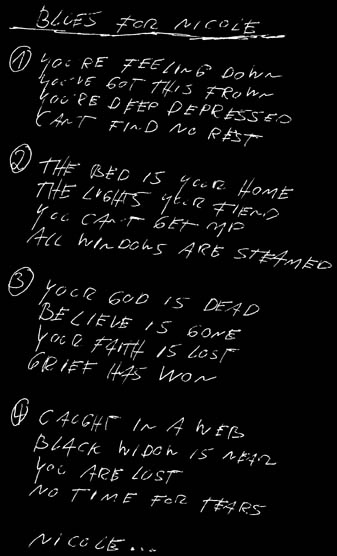 BLUES FOR NICOLE
① YOU'RE FEELING DOWN
YOU'VE GOT THIS FROWN
YOU'RE DEEP DEPRESSED
CAN'T FIND NO REST
② THE BED IS YOUR HOME
THE LIGHTS YOUR FIEND
YOU CAN'T GET UP
ALL WINDOWS ARE STEAMED
③ YOUR GOD IS DEAD
BELIEVE IS GONE
YOUR FAITH IS LOST
GRIEF HAS WON
④ CAUGHT IN A WEB
BLACK WIDOW IS NEAR
YOU ARE LOST
NO TIME FOR TEARS
NICOLE...